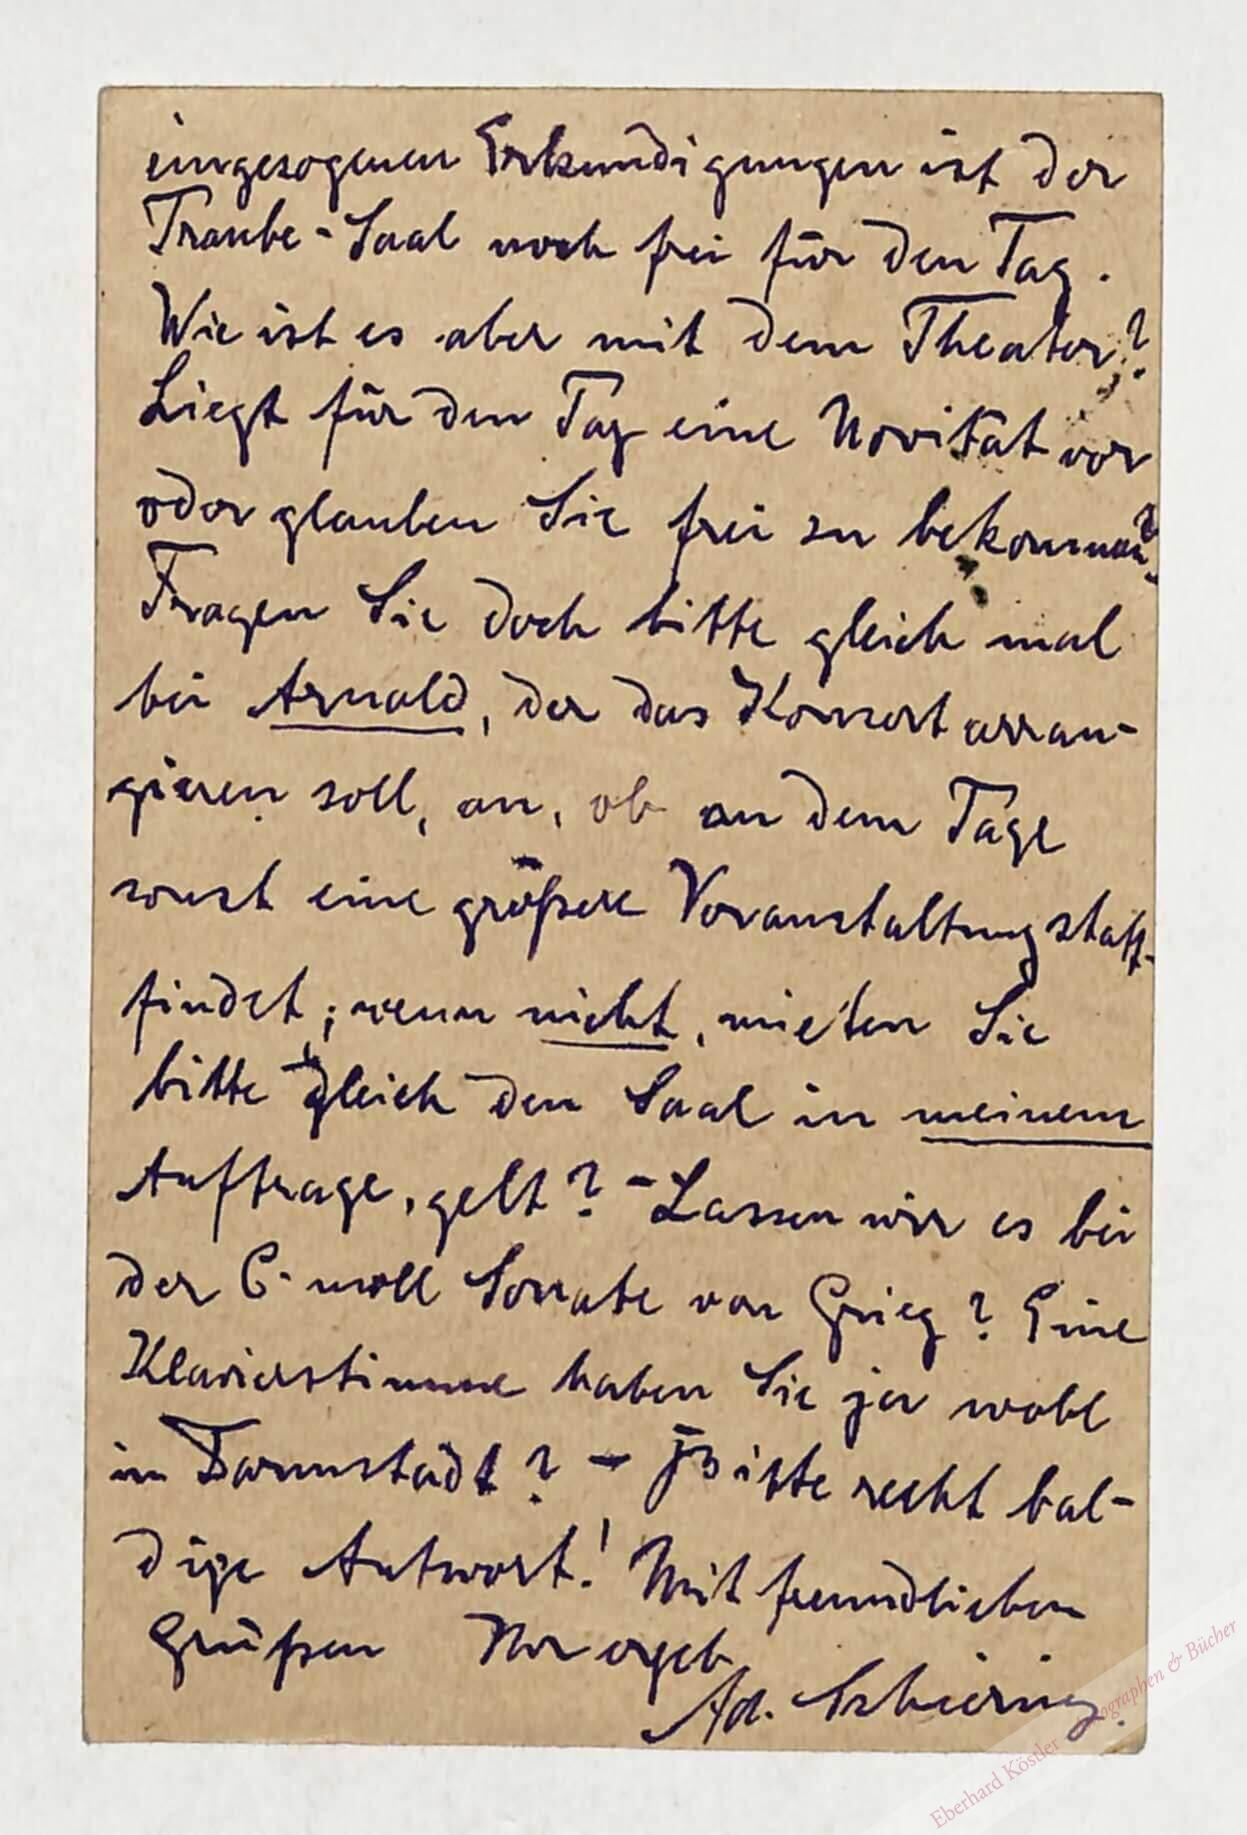 eingezogenen Erkundigungen ist der
Traube-Saal noch frei für den Tag.
Wie ist es aber mit dem Theater?
Liegt für den Tag eine Novität vor
oder glauben Sie frei zu bekommen?
Fragen Sie doch bitte gleich mal
bei Arnold, der das Konzert arran-
gieren soll, an, ob an dem Tage
sonst eine größere Veranstaltung statt-
findet; wenn nicht, mieten Sie
bitte gleich den Saal in meinem
Auftrage, gelt? - Lassen wir es bei
der C-moll Sonate von Grieg? Eine
Klavierstimme haben Sie ja wohl
in Darmstadt? - Bitte recht bal-
dige Antwort! Mit freundlichen
Grüßen Ihr ergeb.
Ad. Schiering.
Eberhard Köstler Autographen & Bücher